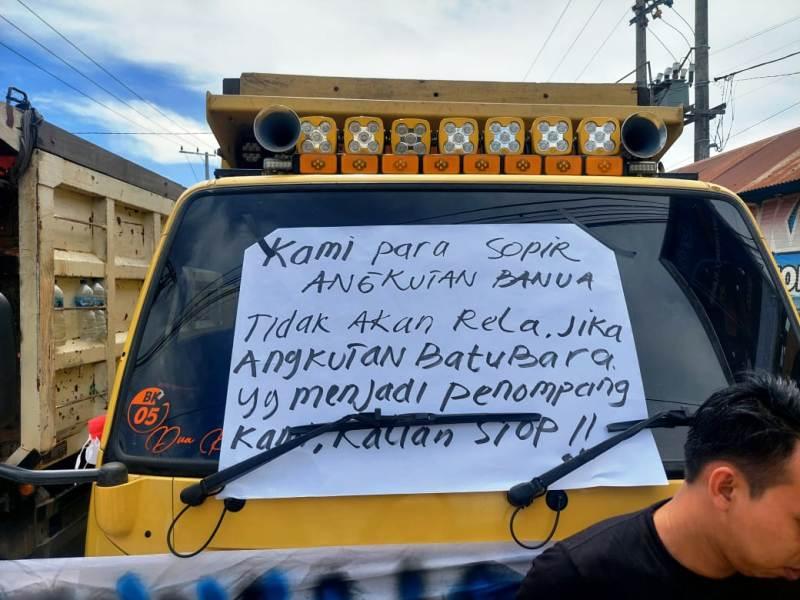 Kami para SOPIR
ANGKUTAN BANUA
Tidak Akan Rela. Jika
ANGKUTAN BatuBara.
yg menjadi penompang
Kami, Kalian STOP !!
BK
05
Dua